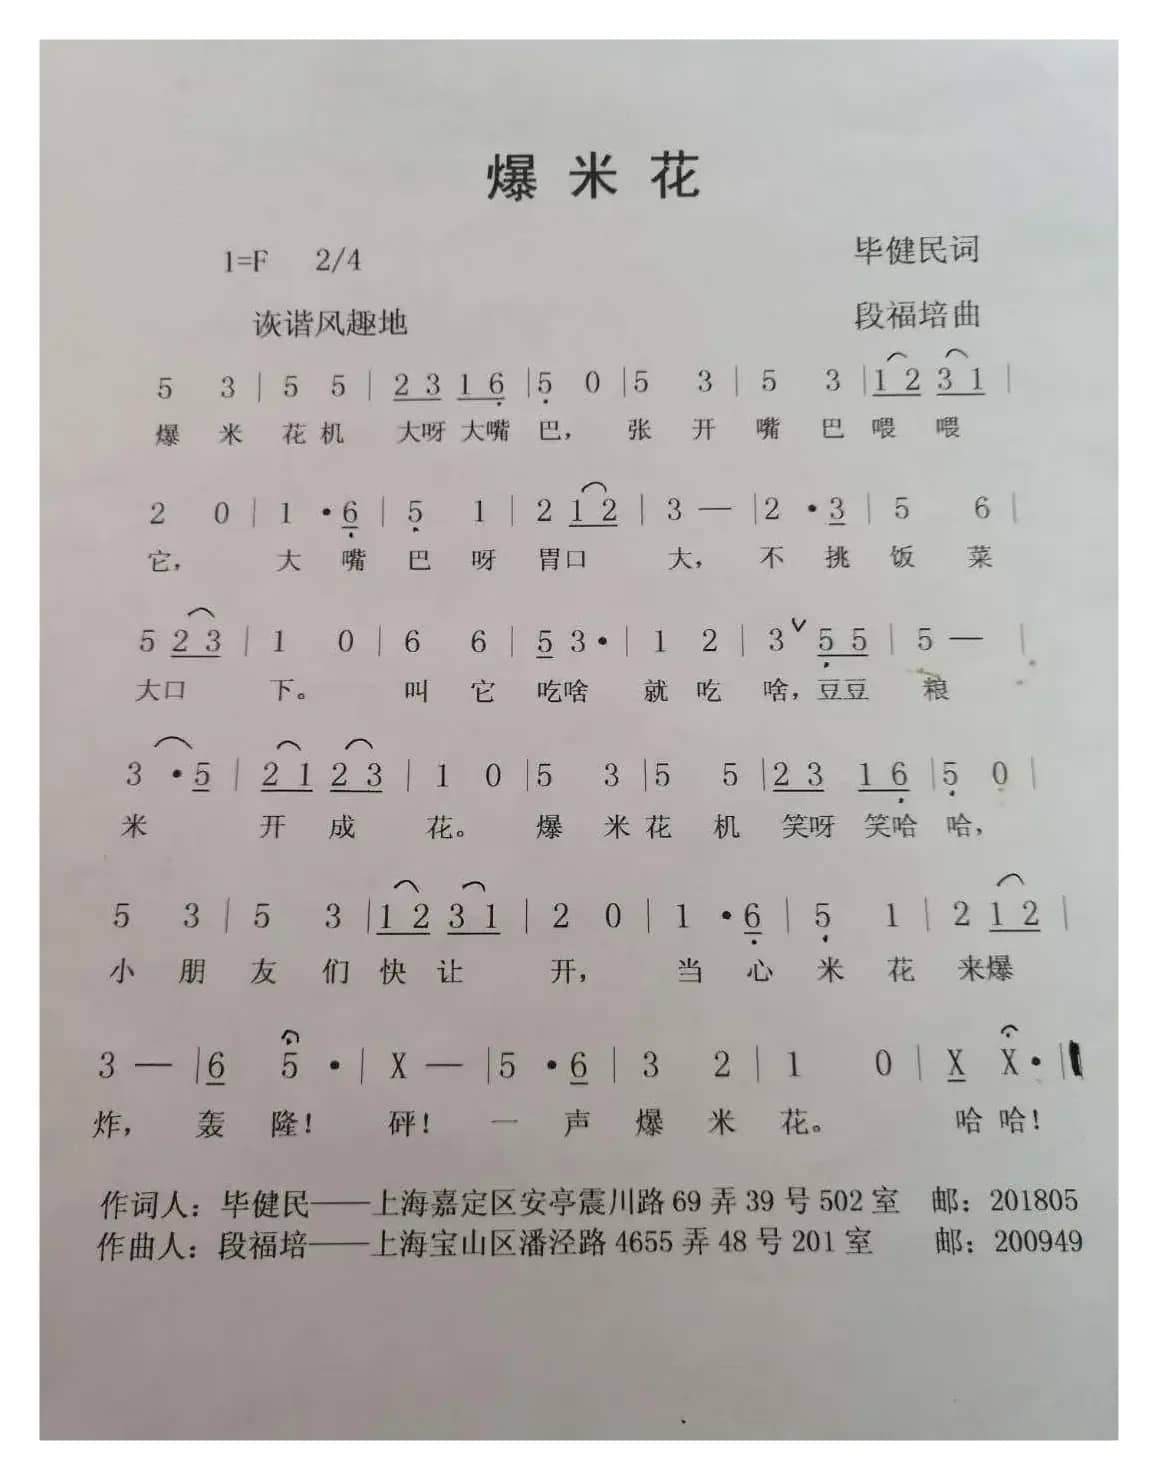 爆米花
1=F 2/4 毕健民词
诙谐风趣地 段福培曲
5 3 | 5 5 | 2 3 1 6 | 5 0 | 5 3 | 5 3 | 1 2 3 1 |
爆 米 花 机 大呀 大嘴 巴, 张 开 嘴 巴 喂 喂
2 0 | 1 · 6 | 5 1 | 2 1 2 | 3 — | 2 · 3 | 5 6 |
它, 大 嘴 巴 呀 胃口 大, 不 挑 饭 菜
5 2 3 | 1 0 | 6 6 | 5 3 · | 1 2 | 3 ∨ 5 5 | 5 — |
大口 下。 叫 它 吃啥 就 吃 啥, 豆豆 粮
3 · 5 | 2 1 2 3 | 1 0 | 5 3 | 5 5 | 2 3 1 6 | 5 0 |
米 开 成 花。 爆 米 花 机 笑呀 笑哈 哈,
5 3 | 5 3 | 1 2 3 1 | 2 0 | 1 · 6 | 5 1 | 2 1 2 |
小 朋 友 们 快 让 开, 当 心 米 花 来爆
3 — | 6 5 · | X — | 5 · 6 | 3 2 | 1 0 | X X · ‖
炸, 轰 隆! 砰! 一 声 爆 米 花。 哈 哈!
作词人: 毕健民——上海嘉定区安亭震川路 69 弄 39 号 502 室 邮: 201805
作曲人: 段福培——上海宝山区潘泾路 4655 弄 48 号 201 室 邮: 200949